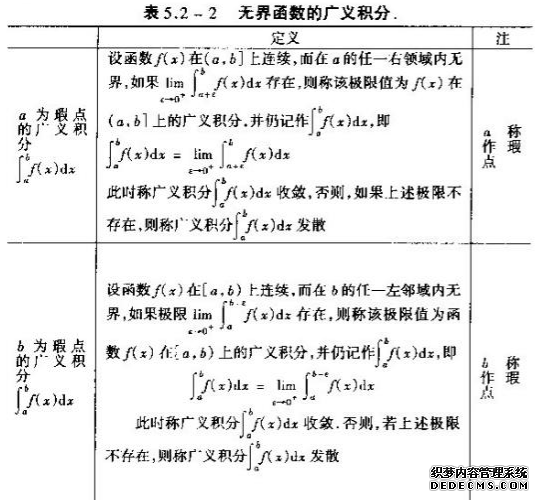 表5.2-2 无界函数的广义积分.
定义
注
a 为瑕点
的广义积
分
∫_a^b f(x)dx
设函数f(x)在(a,b]上连续,而在a的任一右领域内无
界,如果 lim_{ε→0⁺} ∫_{a+ε}^b f(x)dx 存在,则称该极限值为f(x)在
(a,b]上的广义积分,并仍记作∫_a^b f(x)dx,即
∫_a^b f(x)dx = lim_{ε→0⁺} ∫_{a+ε}^b f(x)dx
此时称广义积分∫_a^b f(x)dx 收敛,否则,如果上述极限不
存在,则称广义积分∫_a^b f(x)dx 发散
a 称
作瑕
点
b 为瑕点
的广义积
分
∫_a^b f(x)dx
设函数f(x)在[a,b)上连续,而在b的任一左邻域内无
界,如果极限 lim_{ε→0⁺} ∫_a^{b-ε} f(x)dx 存在,则称该极限值为函
数f(x)在[a,b)上的广义积分,并仍记作∫_a^b f(x)dx,即
∫_a^b f(x)dx = lim_{ε→0⁺} ∫_a^{b-ε} f(x)dx
此时称广义积分∫_a^b f(x)dx 收敛.否则,若上述极限
不存在,则称广义积分∫_a^b f(x)dx 发散
b 称
作瑕
点
织梦内容管理系统
DEDECMS.COM